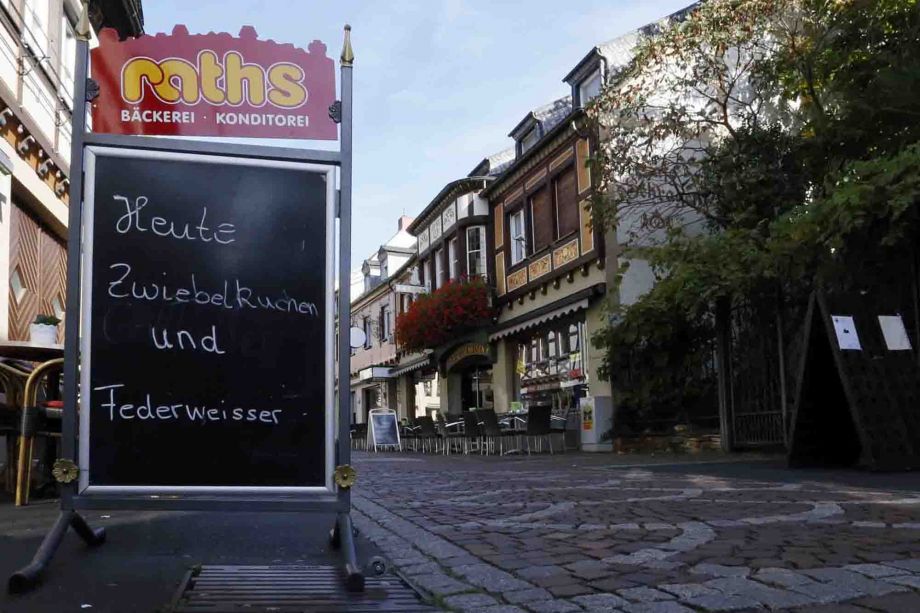 raths
BÄCKEREI · KONDITOREI
Heute
Zwiebelkuchen
und
Federweisser